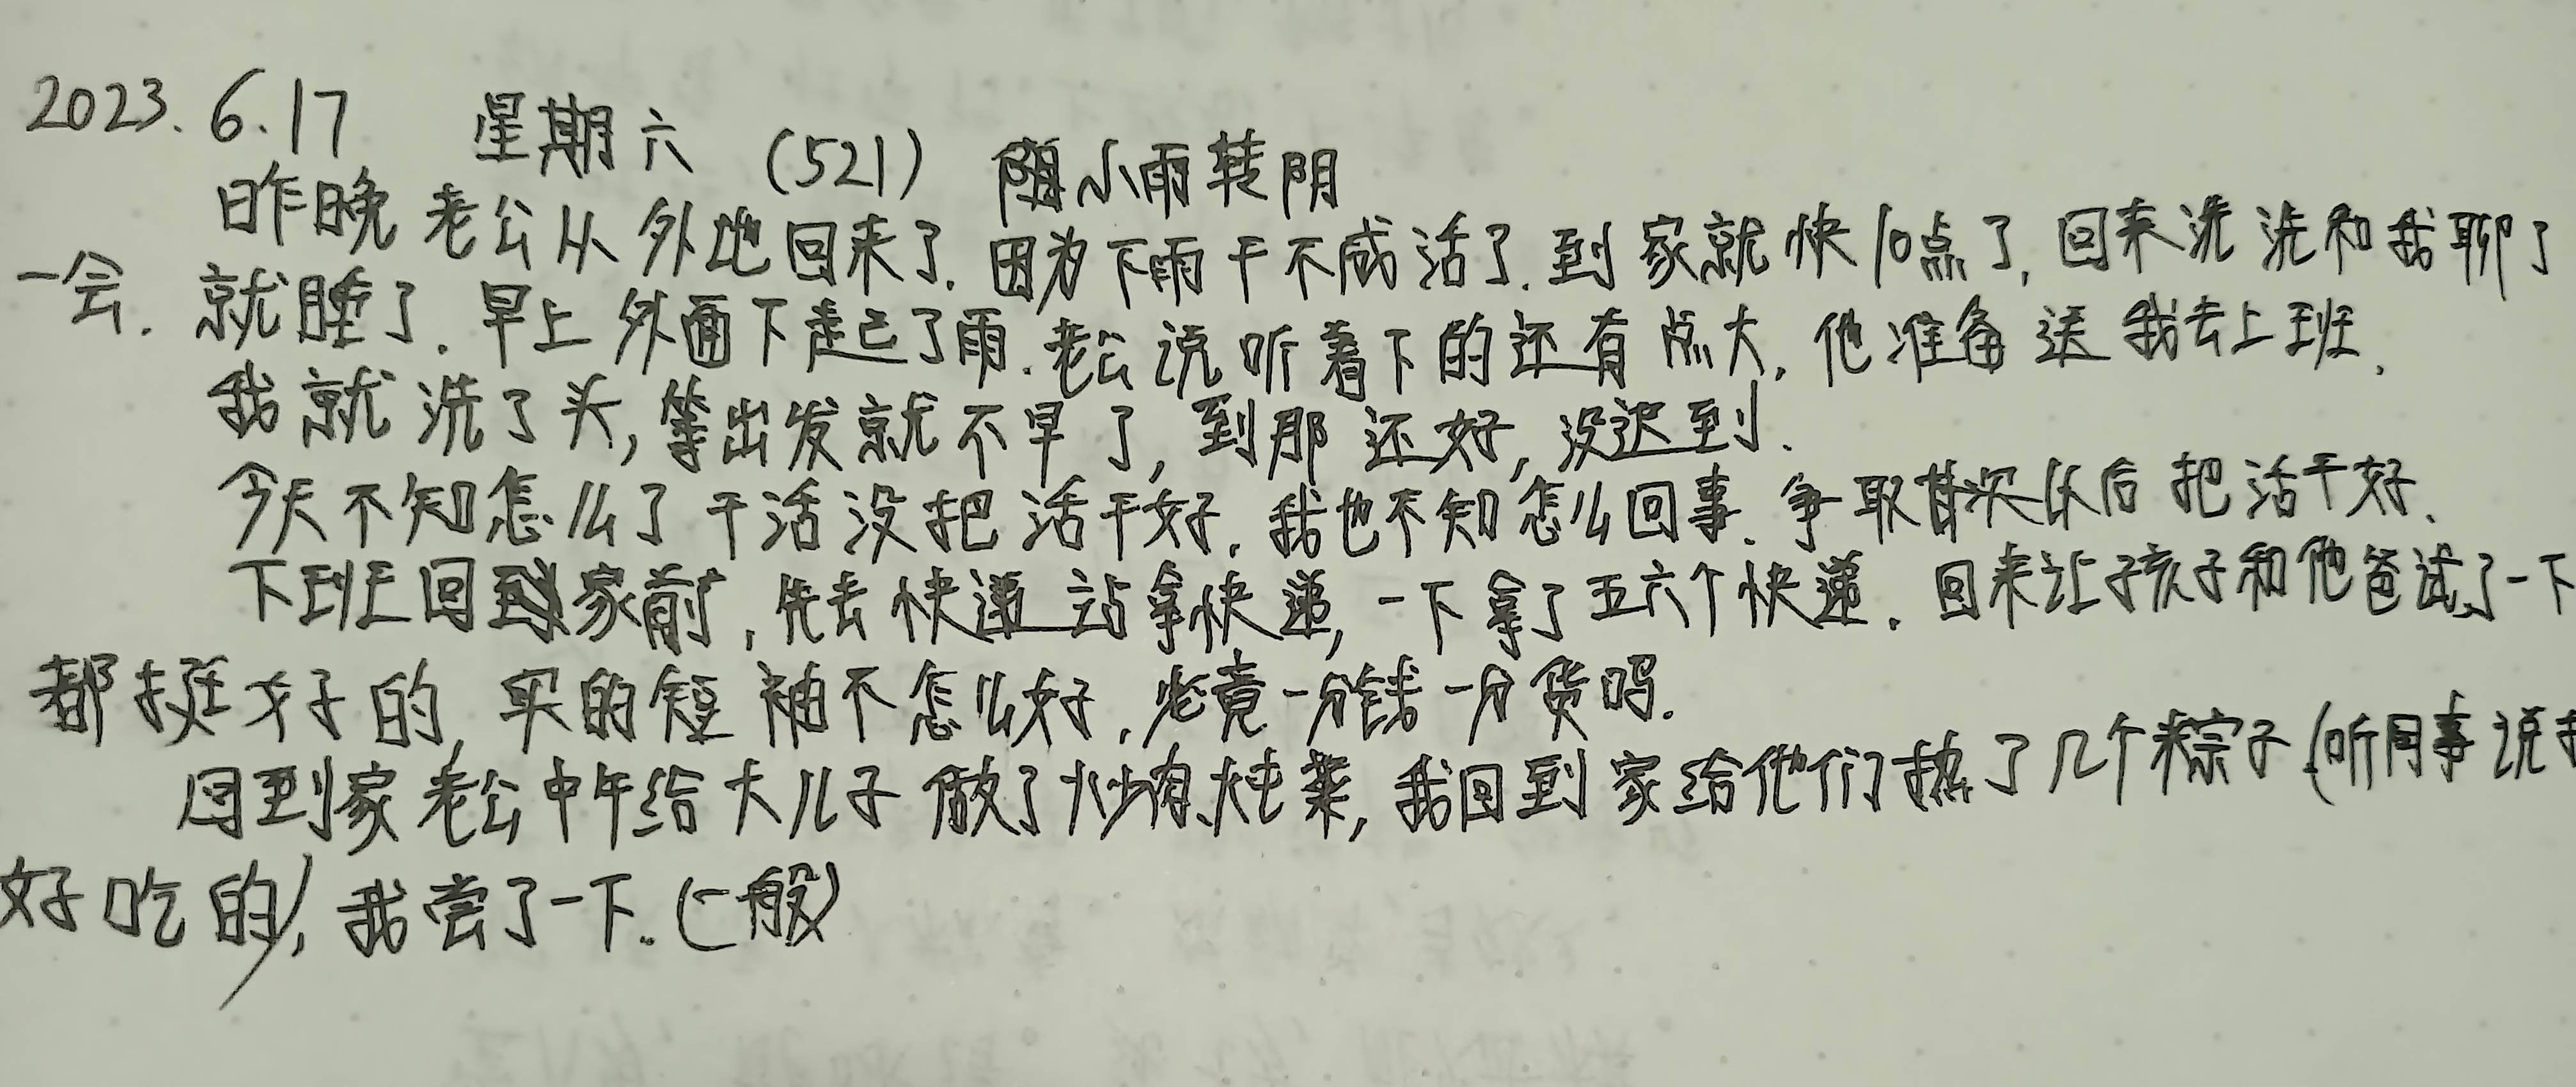 2023.6.17 星期六 (521) 小雨转阴
昨晚老公从外地回来了.因为下雨干不成活了.到家就快10点了,回来洗洗和我聊了
一会.就睡了.早上外面下起了雨.老公说听着下的还有点大,他准备送我去上班.
我就洗了头,等出发就不早了,到那还好,没迟到.
今天不知怎么了干活没把活干好.我也不知怎么回事.争取首次从后把活干好.
下班回家前,先去快递站拿快递,一下拿了五六个快递.回来让孩子和他爸试了一下
都挺好的,买的短袖不怎么好.必竟一分钱一分货吗.
回到家老公中午给大儿子做了炒有炖菜,我回到家给他们热了几个粽子(听同事说
好吃的),我尝了一下.(一般)